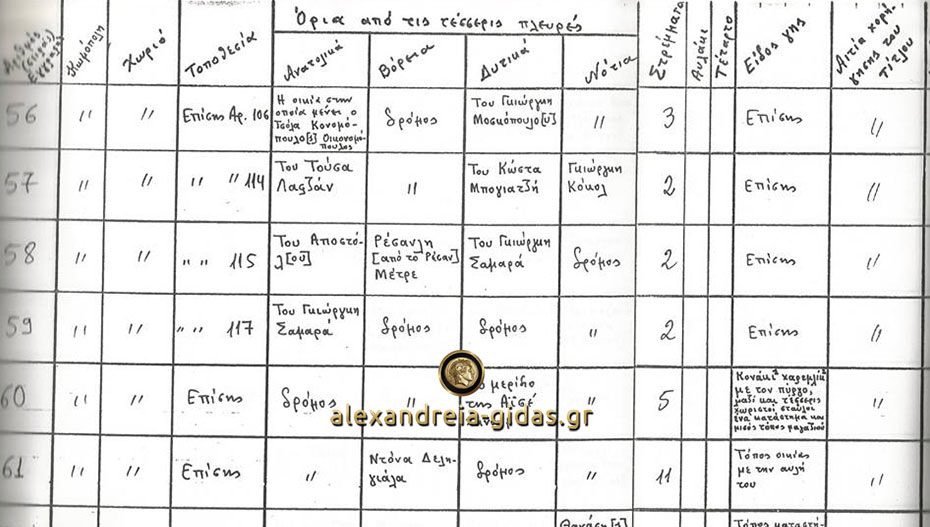 Όρια από τις τέσσερις πλευρές
Αριθμός
Εγγραφής
Κωμόπολη
Χωριό
Τοποθεσία
Ανατολικά
Βόρεια
Δυτικά
Νότια
Στρέμματα
Αυλάκι
Τέταρτο
Είδος γης
Αιτία χορή-
γησης του
τίτλου
56 〃 〃 Επίσης Αρ. 106
Η οικία στην
οποία μένει ο
Τσόλα Κονομό-
πουλο[ς] Οικονομό-
πουλος
δρόμος
Του Γκιώργκη
Μοσκόπουλο[υ]
〃 3 Επίσης 〃
57 〃 〃 〃 〃 114
Του Τούσα
Λαζζάν
〃
Του Κώστα
Μπογιατζή
Γκιώργκη
Κόκολ
2 Επίσης 〃
58 〃 〃 〃 〃 115
Του Αποστό-
λ[ου]
Ρέσανλη
[από το Ρέσαν]
Μέτρε
Του Γκιώργκη
Σαμαρά
δρόμος 2 Επίσης 〃
59 〃 〃 〃 〃 117
Του Γκιώργκη
Σαμαρά
δρόμος δρόμος 〃 2 Επίσης 〃
60 〃 〃 Επίσης δρόμος 〃
μερίδιο
της Αϊσέ
5
Κονάκι χαρεμλίκ
με τον πύργο,
μαζί και τέσσερις
χωριστοί σταύλοι
ένα κατάστημα και
μισός τόπος μαγαζιού
〃
alexandreia-gidas.gr
61 〃 〃 Επίσης 〃
Ντόνα Δελη-
γιάλα
δρόμος 〃 11
Τόπος οικίας
με την αυλή
του
〃
Θανάση[ς]
Τόπος καταστή-